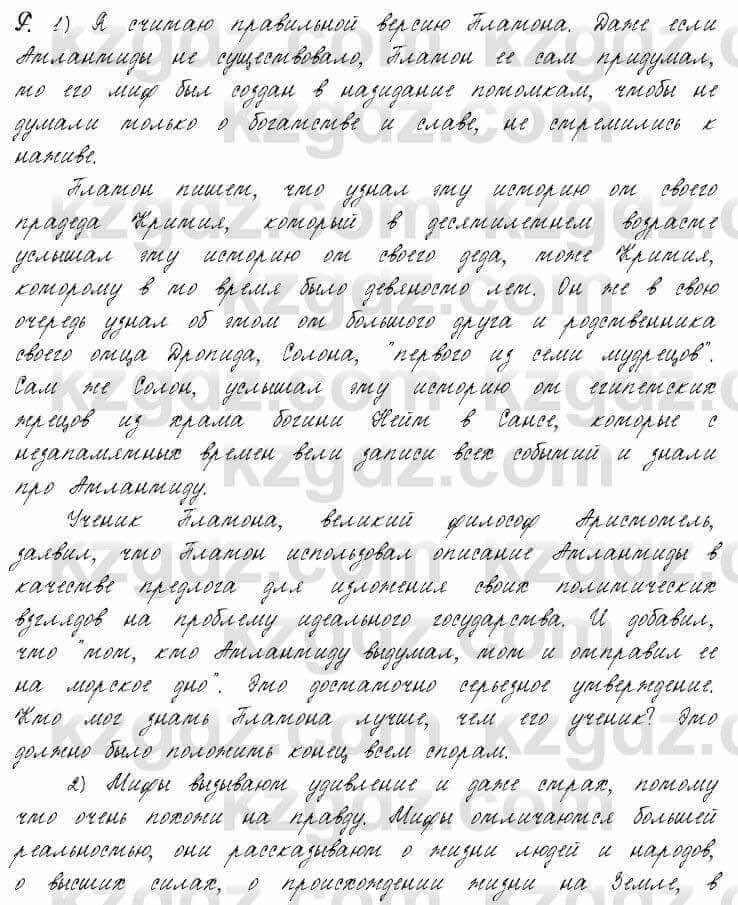 Р. 1) Я считаю правильной версию Платона. Даже если
Атлантиды не существовало, Платон ее сам придумал,
то его миф был создан в назидание потомкам, чтобы не
думали только о богатстве и славе, не стремились к
наживе.
Платон пишет, что узнал эту историю от своего
прадеда Крития, который в десятилетнем возрасте
услышал эту историю от своего деда, тоже Крития,
которому в то время было девяносто лет. Он же в свою
очередь узнал об этом от большого друга и родственника
своего отца Дропида, Солона, "первого из семи мудрецов".
Сам же Солон, услышал эту историю от египетских
жрецов из храма богини Нейт в Саисе, которые с
незапамятных времен вели записи всех событий и знали
про Атлантиду.
Ученик Платона, великий философ Аристотель,
заявил, что Платон использовал описание Атлантиды в
качестве предлога для изложения своих политических
взглядов на проблему идеального государства. И добавил,
что "тот, кто Атлантиду выдумал, тот и отправил ее
на морское дно". Это достаточно серьезное утверждение.
Кто мог знать Платона лучше, чем его ученик? Это
должно было положить конец всем спорам.
2) Мифы вызывают удивление и даже страх, потому
что очень похожи на правду. Мифы отличаются большей
реальностью, они рассказывают о жизни людей и народов,
о высших силах, о происхождении жизни на Земле, в